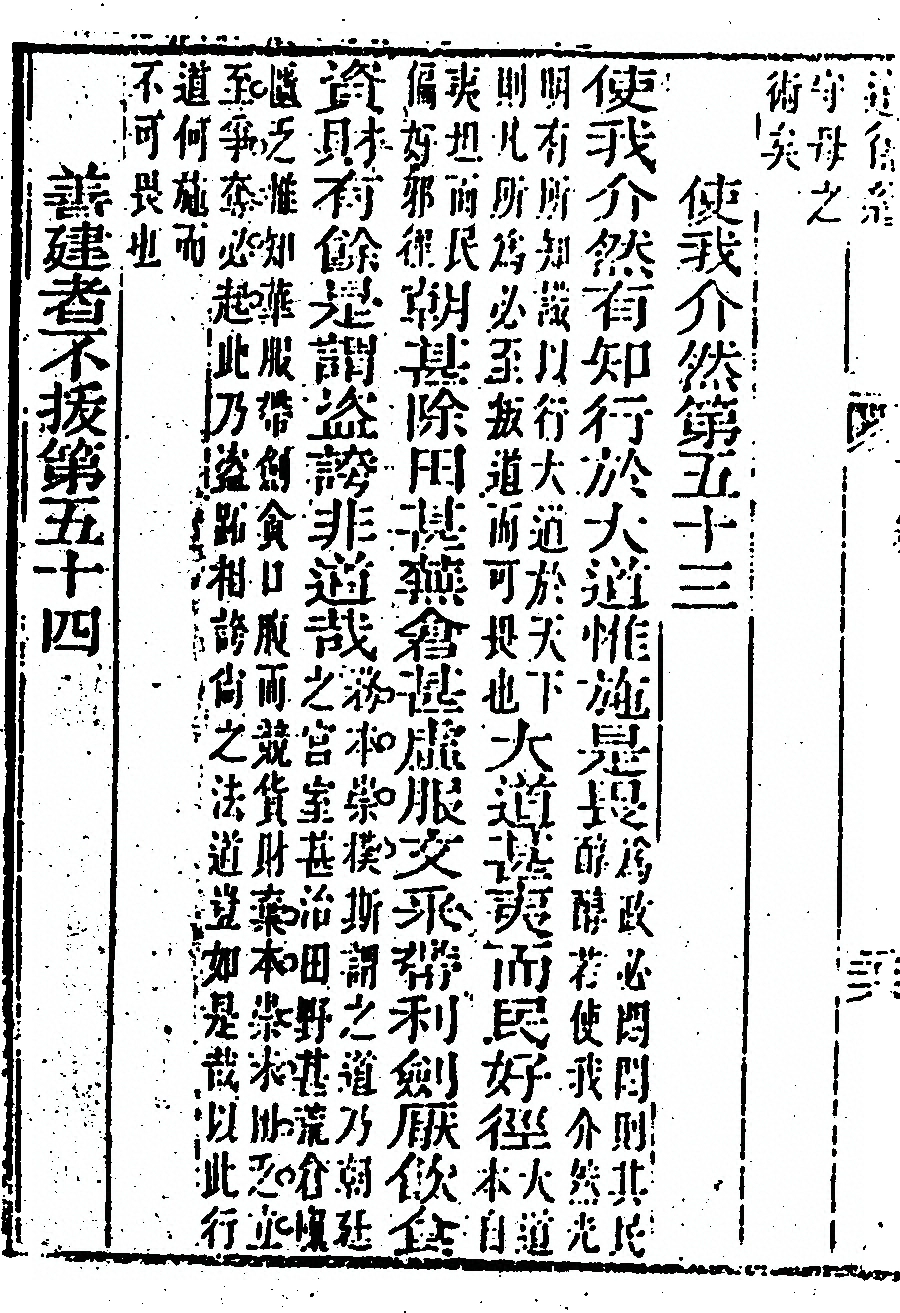 守母之
術矣
使我介然第五十三
使我介然有知行於大道惟施是畏爲政必悶悶則其民醇醇若使我介然光
明有所知識以行大道於天下則凡所爲必至叛道而可畏也大道甚夷而民好徑大道本自
夷坦而民偏好邪徑朝甚除田甚蕪倉甚虛服文采帶利劍厭飲食
資財有餘是謂盜誇非道哉務本崇樸斯謂之道乃朝廷之宮室甚治田野甚荒倉廩
匱乏惟知華服帶劍貪口腹而競貨財棄本崇末乏並
至爭奪必起此乃盜跖相誇尚之法道豈如是哉以此行
道何施而
不可畏也
善建者不拔第五十四